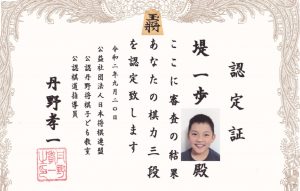 認定証
堤一歩殿
ここに審査の結果
あなたの棋力三段
を認定致します
令和二年九月二〇日
公益社団法人日本将棋連盟
公認丹野将棋子ども教室
公認棋道指導員
丹野孝一
王将